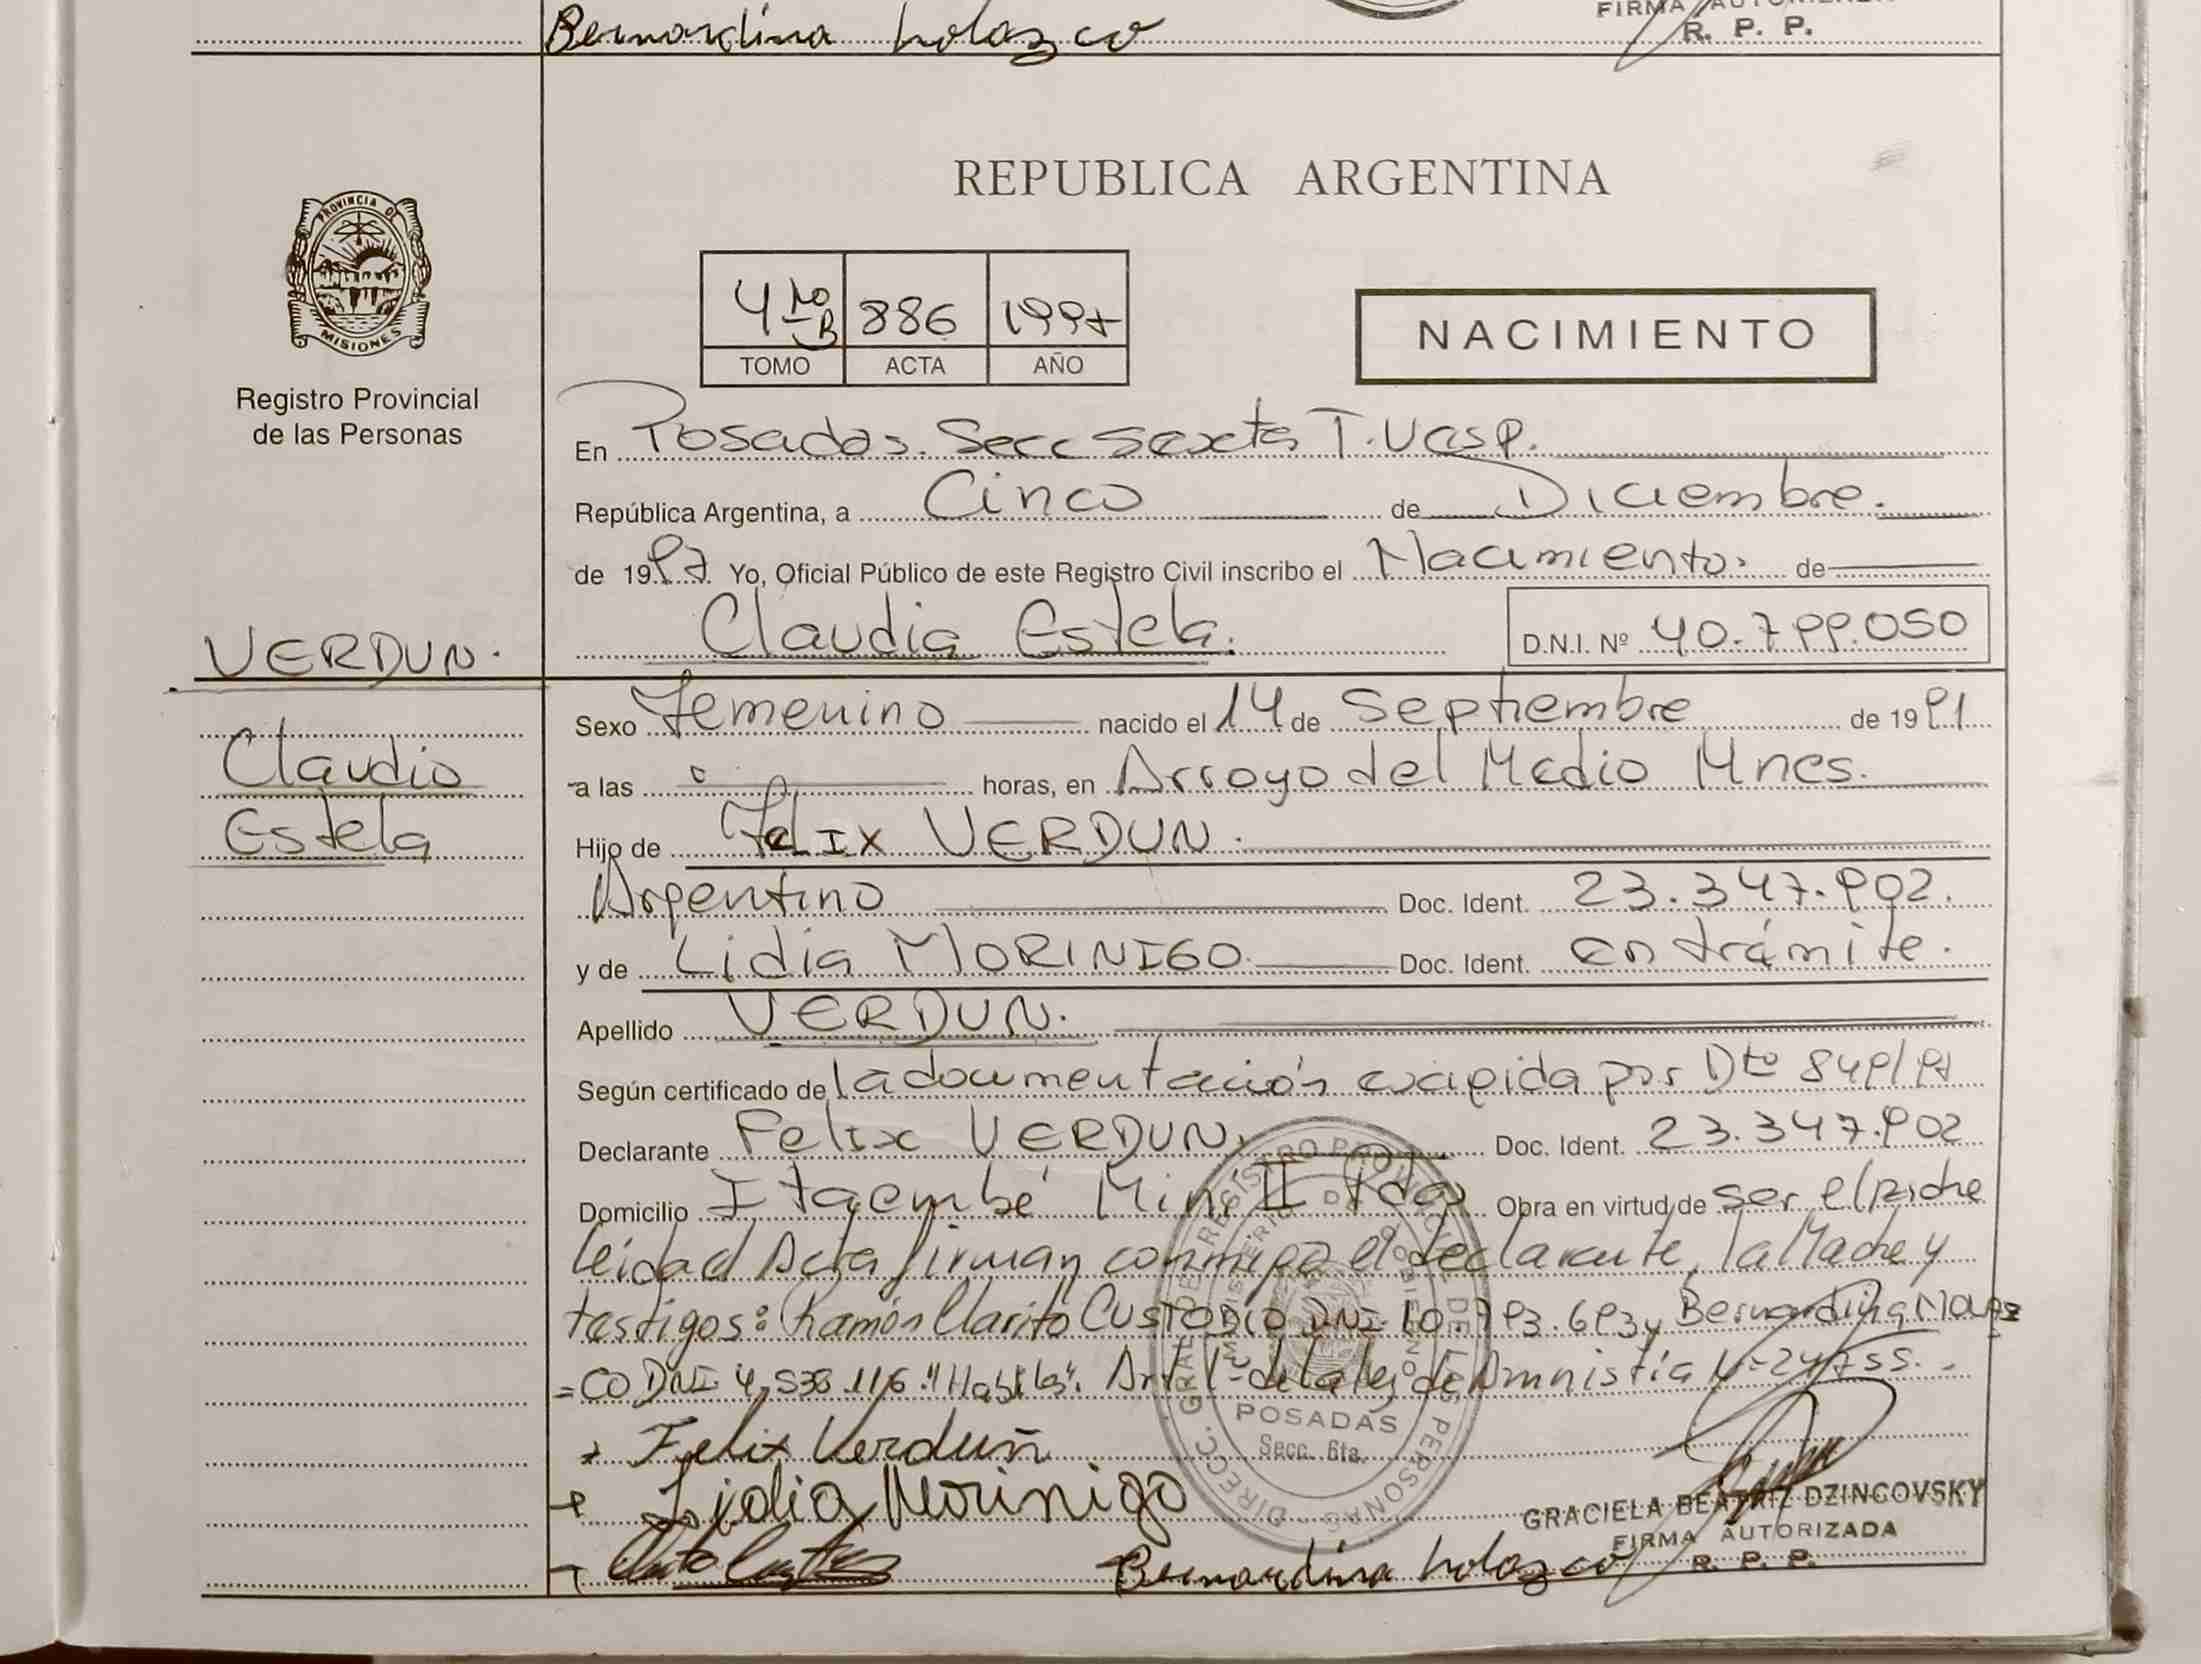 Bernardina Nolazco
FIRMA AUTORIZADA
R. P. P.
REPUBLICA ARGENTINA
PROVINCIA DE
MISIONES
Registro Provincial
de las Personas
4to B 886 1997
TOMO ACTA AÑO
NACIMIENTO
En Posadas. Secc Sexta T. Vesp.
República Argentina, a Cinco de Diciembre.
de 1997 Yo, Oficial Público de este Registro Civil inscribo el Nacimiento. de
Claudia Estela. D.N.I. Nº 40.799.050
VERDUN.
Claudia
Estela
Sexo Femenino nacido el 14 de Septiembre de 1991
a las horas, en Arroyo del Medio Mnes.
Hijo de Felix VERDUN.
Argentino Doc. Ident. 23.347.902.
y de Lidia MORINIGO Doc. Ident. en trámite.
Apellido VERDUN.
Según certificado de la documentación exigida por Dto 849/97
Declarante Felix VERDUN. Doc. Ident. 23.347.902
Domicilio Itaembé Miní II Pdas Obra en virtud de ser el padre
leida el Acta firman conmigo el declarante, la Madre y
testigos: Ramón Clarito CUSTODIO DNI. 10.793.693 y Bernardina Nolaz
=CO DNI. 4.538.116 "Habiles". Art. 1º de la ley de Amnistía Nº 24755.
DIRECC. GRAL DEL REGISTRO PROVINCIAL DE LAS PERSONAS
MINISTERIO DE GOBIERNO
POSADAS
Secc. 6ta.
Felix Verdun
Lidia Morinigo
Bernardina Nolazco
GRACIELA BEATRIZ DZINCOVSKY
FIRMA AUTORIZADA
R. P. P.